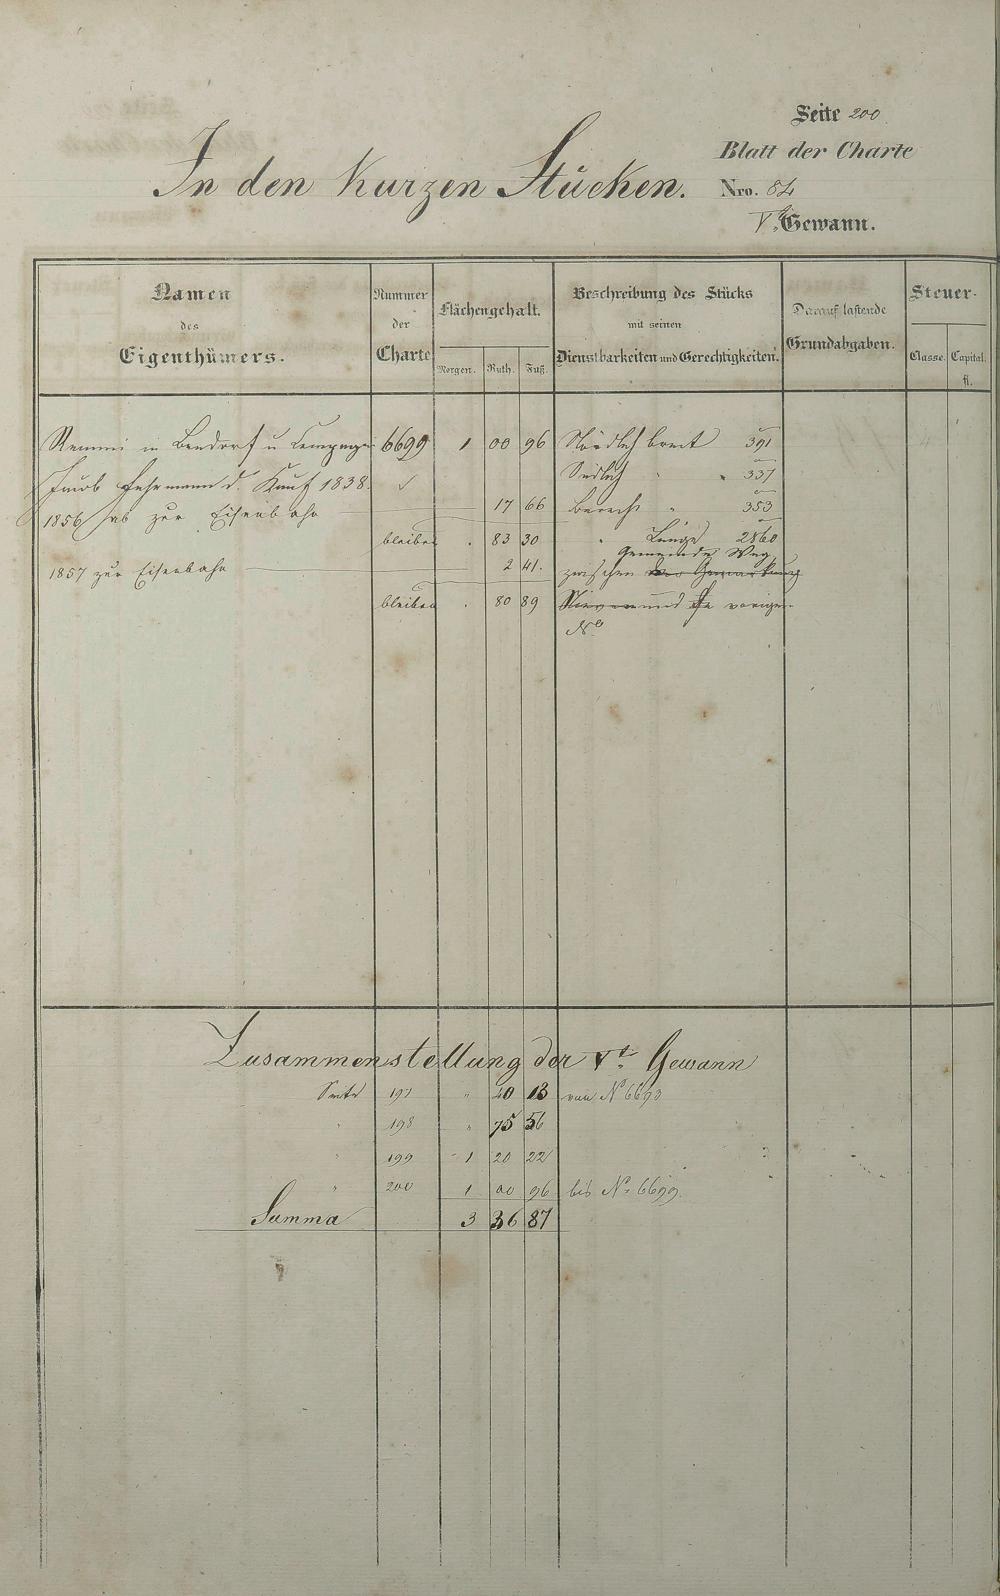 Seite 200
Blatt der Charte
In den Kurzen Stücken. Nro. 84
Vte Gewann.
Namen des Eigenthümers.
Nummer der Charte
Flächengehalt.
Morgen. Ruth. Fuß.
Beschreibung des Stücks mit seinen Dienstbarkeiten und Gerechtigkeiten.
Darauf lastende Grundabgaben.
Steuer-
Classe. Capital. fl.
Remmi in Bendorf u Compagn 6699 1 00 96 Nördlich breit 391
Jacob Fuhrmann d. Kauf 1838. Südlich " " 337
1856 ab zur Eisenbahn 17 66 Berecht " 353
bleiben . 83 30 " Länge 2860
Gemeinde Weg
1857 zur Eisenbahn 2 41. zwischen der Gemarkung
bleiben . 80 89 und vorigen
No
Zusammenstellung der Vt. Gewann
Seite 197 " 40 13 von No 6693
" 198 " 75 56
" 199 1 20 22
" 200 1 00 96 bis No 6699.
Summa 3 36 87